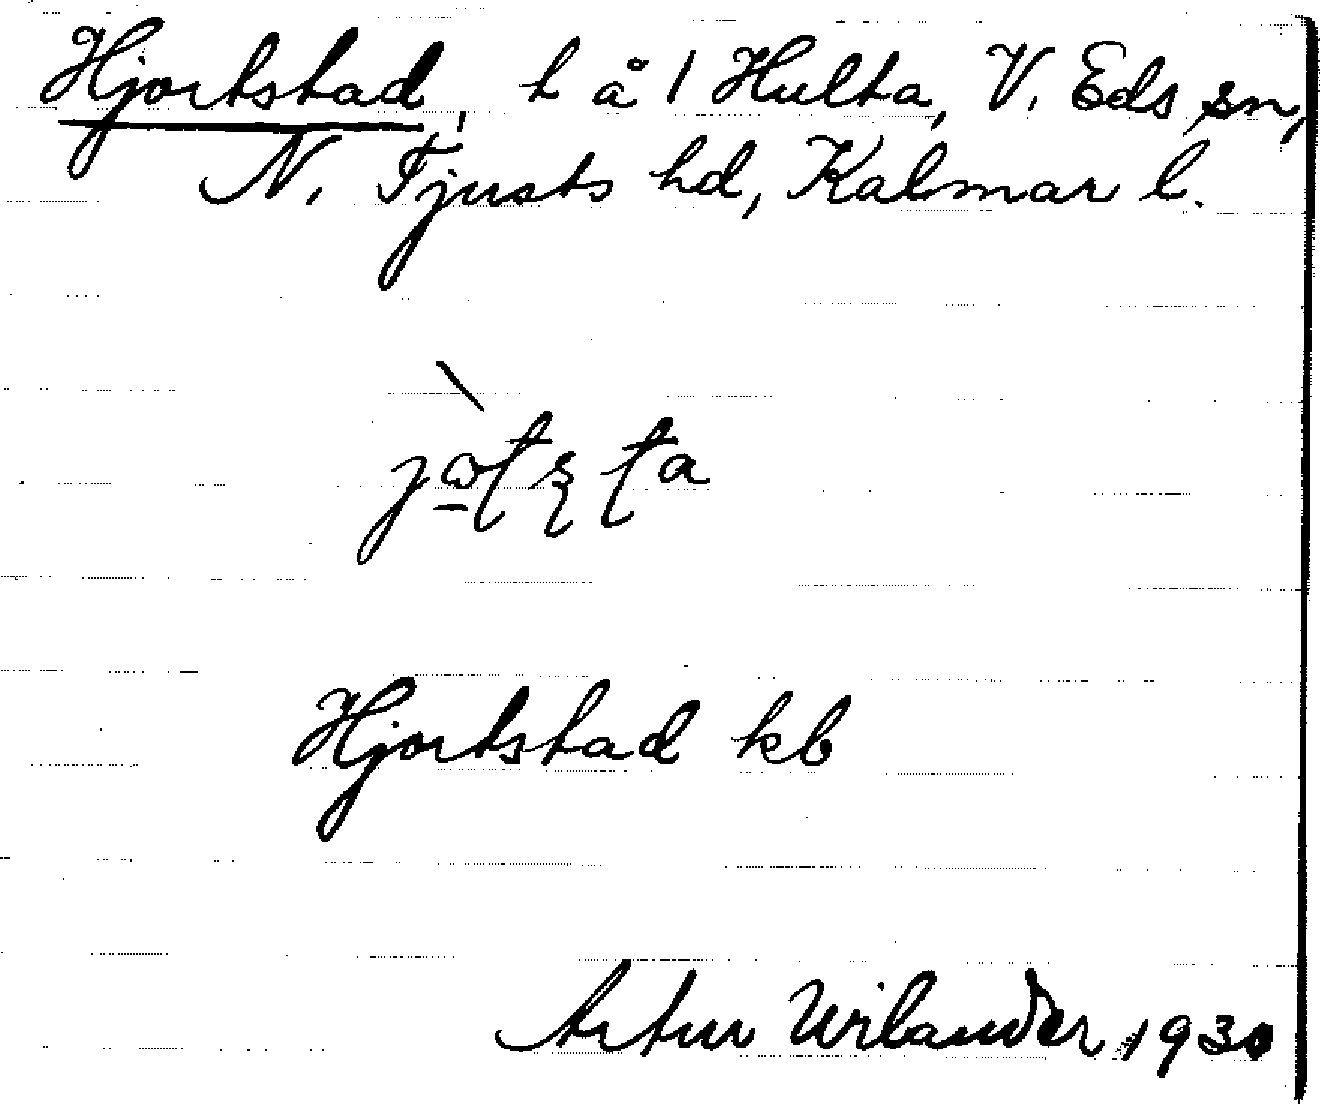 Hjortstad, t å 1 Hulta, V. Eds sn,
N. Tjusts hd, Kalmar l.
Hjortstad kb
Artur Wilander, 1930